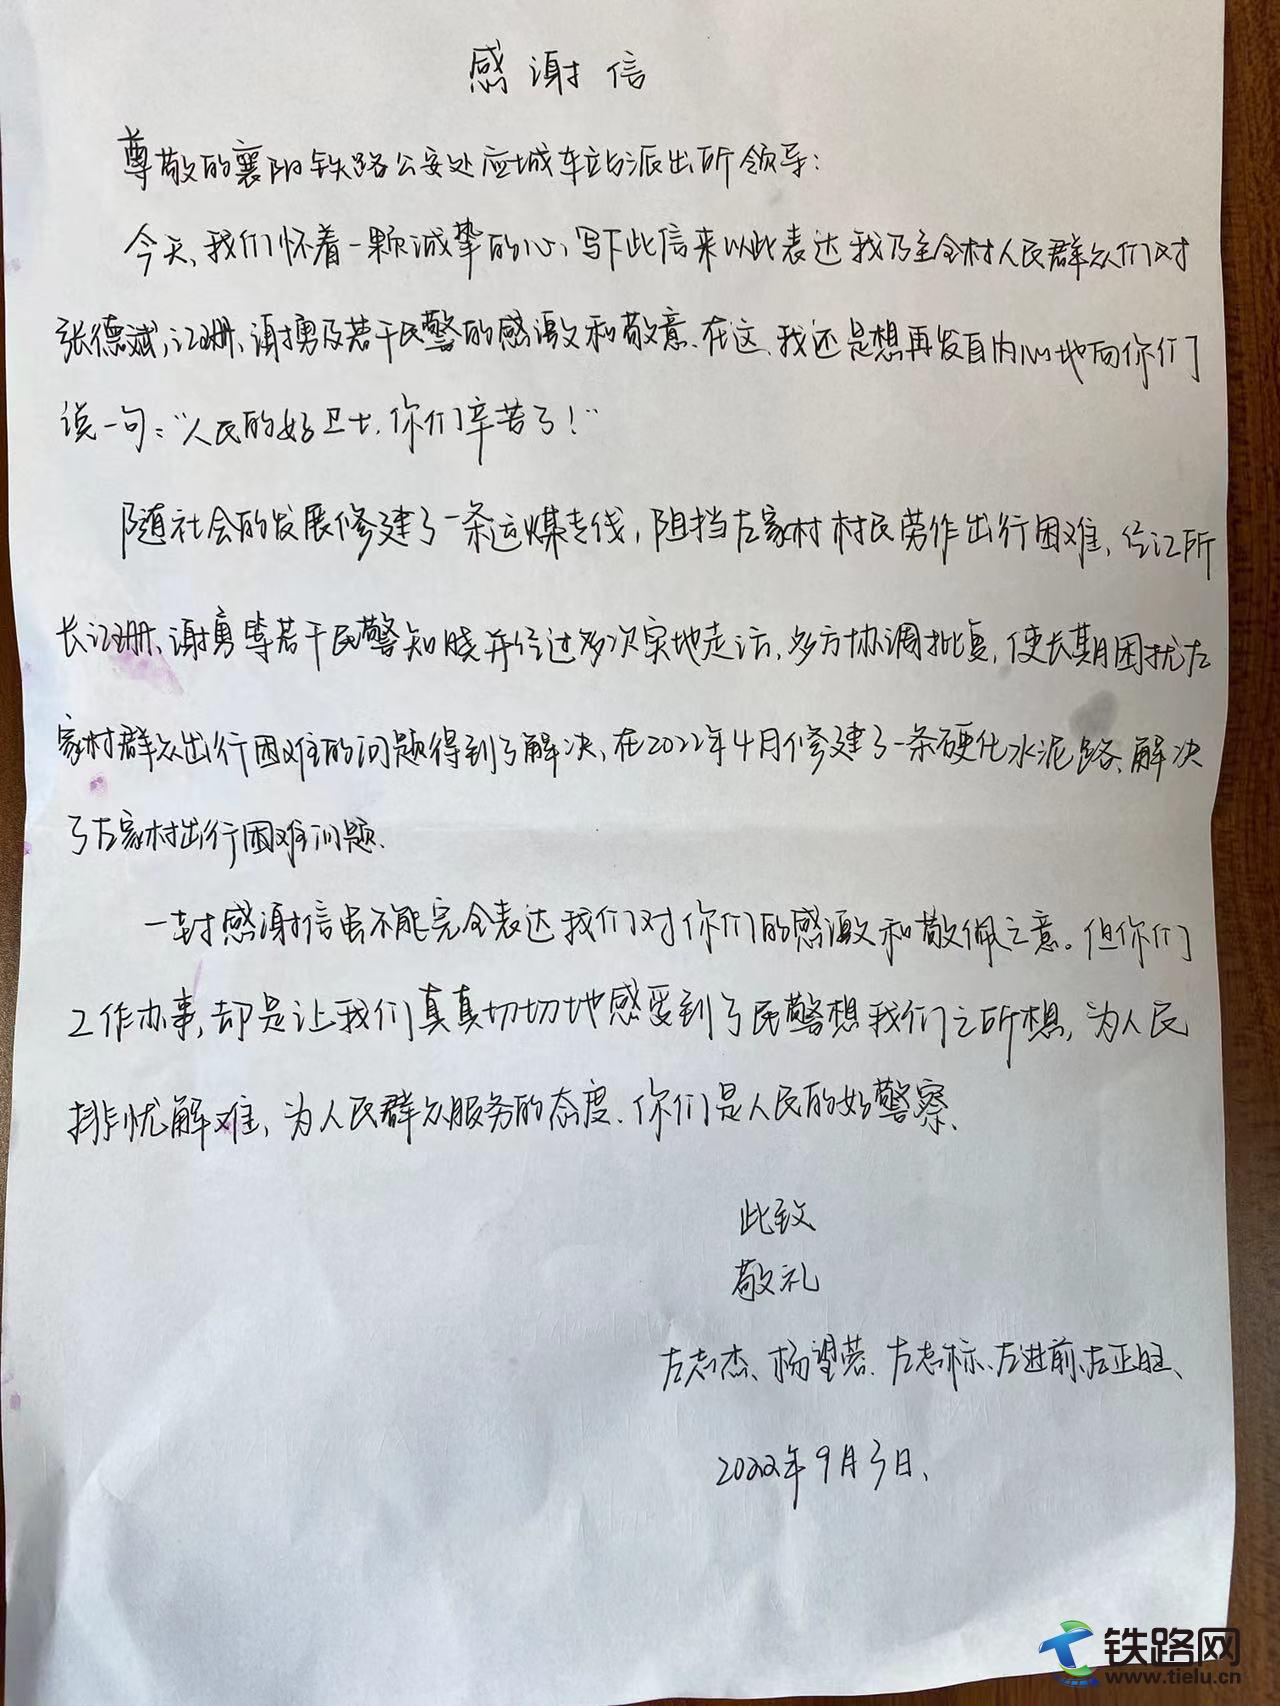 感谢信
尊敬的襄阳铁路公安处应城车站派出所领导：
今天，我们怀着一颗诚挚的心，写下此信来以此表达我乃至全村人民群众们对
张德斌，江珊、谢勇及若干民警的感激和敬意．在这、我还是想再发自内心地向你们
说一句：“人民的好卫士，你们辛苦了！”
随社会的发展修建了一条运煤专线，阻挡左家村村民劳作出行困难，经江所
长江珊、谢勇等若干民警知晓并经过多次实地走访，多方协调批复，使长期困扰左
家村群众出行困难的问题得到了解决，在2022年4月修建了一条硬化水泥路、解决
了左家村出行困难问题．
一封感谢信虽不能完全表达我们对你们的感激和敬佩之意。但你们
工作办事，却是让我们真真切切地感受到了民警想我们之所想，为人民
排忧解难，为人民群众服务的态度．你们是人民的好警察．
此致
敬礼
左志杰、杨望蓉．左志标、左进前、左正旺、
2022年9月3日、
铁路网
www.tielu.cn